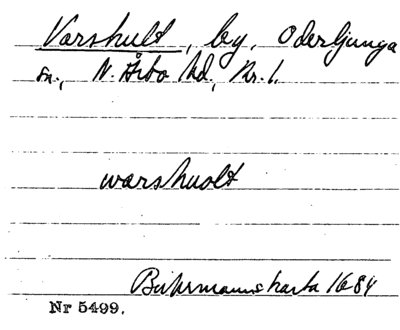 Varshult, by, Oderljunga
sn., N. Åsbo hd, Kr. l.
warshuolt
Buhrmanns karta 1684
Nr 5499.